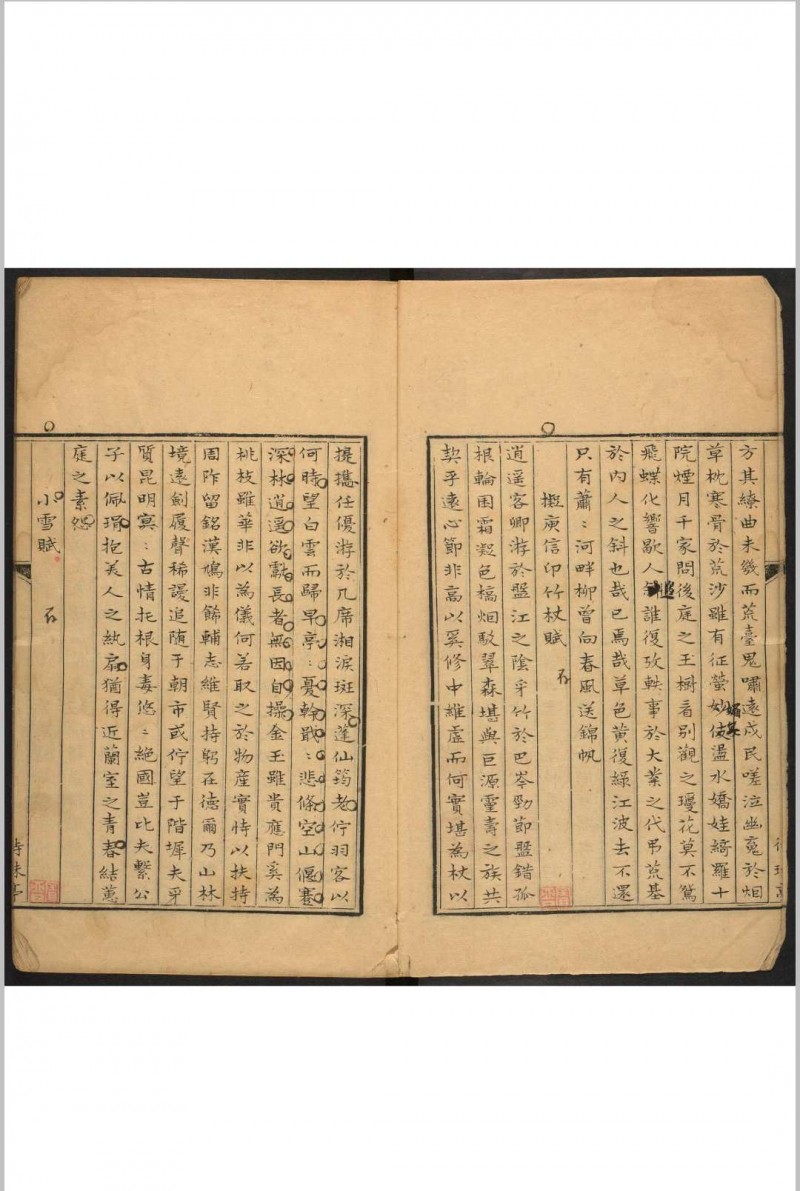 方其繚曲未畿而荒臺鬼嘯遠戍民嗟泣幽寃於烟
草枕寒骨於荒沙雖有征螢妙伎盪水嬌娃綺羅十
院煙月千家問後庭之玉樹看別觀之瓊花莫不鴛
飛蝶化響歇人遐誰復攷軼事於大業之代弔荒基
於內人之斜也哉已焉哉草色黃復綠江波去不還
只有蕭:河畔柳曾向春風送錦帆
擬庾信卭竹杖賦
逍遥客卿游於盤江之陰穿竹於巴岑勁節盤錯孤
根輪囷霜凝色槁烟駁翠森堪與巨源靈壽之族共
契乎遠心節非高以奚修中維虛而何實堪為杖以
提攜任優游於几席湘淚斑深蓬仙筠老佇羽客以
何時望白雲而歸早亭:憂幹戢:悲條空山偃蹇
深林逍遥欲翫長者無因自操金玉雖貴應門奚為
桃枝雖華非以為儀何若取之於物產實恃以扶持
周阼留銘漢鳩非餙輔志維賢持躬在德爾乃山林
境遠劍履聲稀謾追随于朝市或佇望于階墀夫乎
質昆明冥:古情托根身毒悠:絕國豈比夫繫公
子以佩瑻抱美人之紈扇猶得近蘭室之青春結蕙
庭之素怨
小雪賦